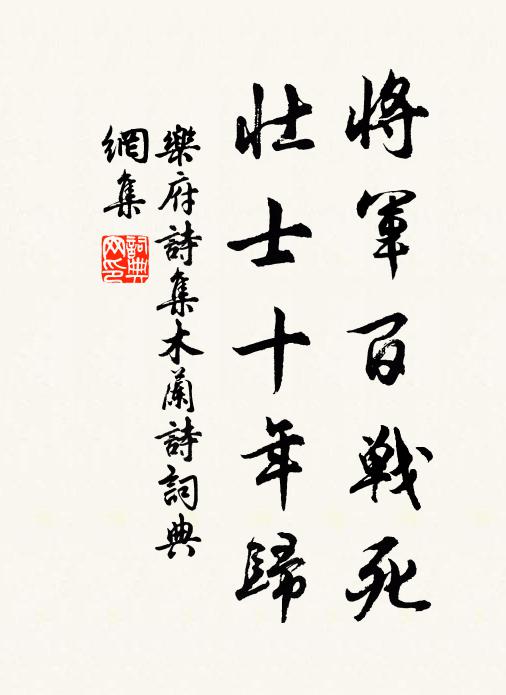 將軍百戰死
壯士十年歸
樂府詩集木蘭詩詞典
網集
詞典網印